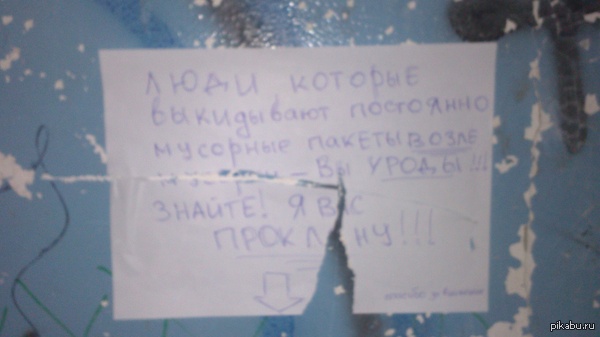 ЛЮДИ КОТОРЫЕ
ВЫКИДЫВАЮТ ПОСТОЯННО
МУСОРНЫЕ ПАКЕТЫ ВОЗЛЕ
– ВЫ УРОДЫ!!!
ЗНАЙТЕ! Я ВАС
ПРОКЛЯНУ!!!
pikabu.ru